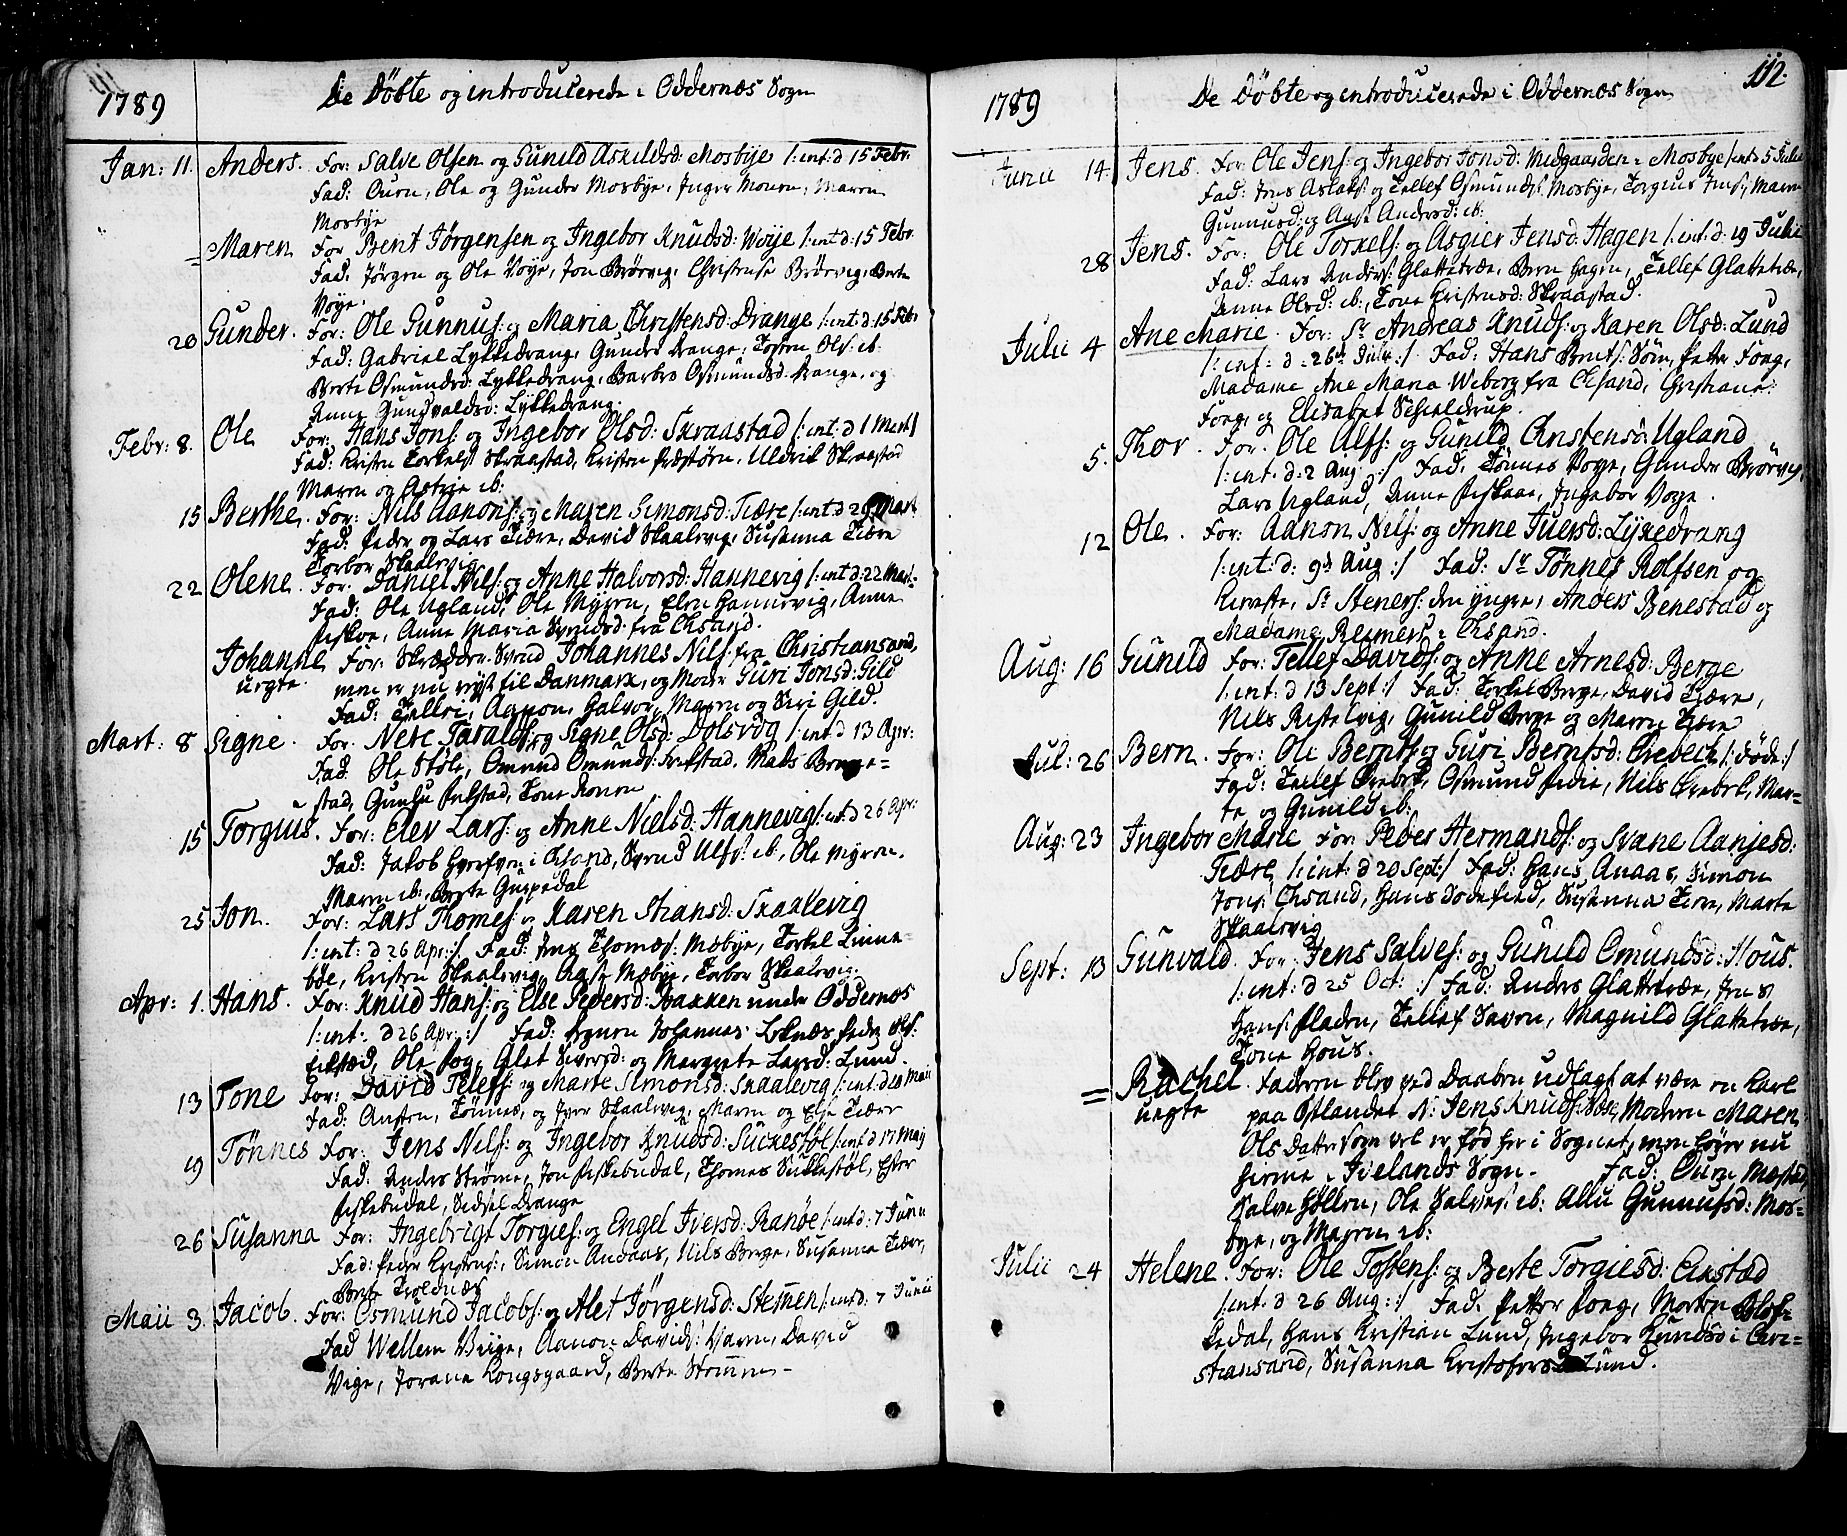 1789 De Döbte og introducerede i Oddernæs Sogn
Jan: 11. Anders. For: Salve Olsen og Gunild Askildsd: Mosbye /: int: d 15 Febr:
Fad: Ouen, Ole og Gunder Mosbye, Inger Mouen, Maren
Mosbye
= Maren For Bent Jörgensen og Ingebor Knudsd: Woÿe /: int: d: 15 Febr:
Fad: Jörgen og Ole Voye, Jon Brörvig, Christense Brörvig, Berte
Voye.
20 Gunder. For: Ole Gunnufs: og Maria Christensd: Drange /: int: d: 15 Febr
Fad: Gabriel Lykkedrang, Gunder Drange, Tosten Ols: ib.
Berte Osmundsd: Lykkedrang, Barbro Osmundsd: Drange, og
Anne Gundvaldsd: Lykkedrang.
Febr: 8. Ole For: Hans Jons: og Ingebor Olsd: Skraastad /: int: d 1 Mart:/
Fad: Kristen Torkels: Skraastad, Kristen Præstörn, Uldrik Skraastad
Maren og Astrie ib:
15 Berthe. For: Nils Aanons: og Maren Simonsd: Tiære /: int: d 29 Mart:
Fad: Peder og Lars Tiære, David Skaalevig, Susanna Tiære
Torbor Skaalevig
22 Olene. For: Daniel Nils: og Anne Halvorsd: Hannevig /: int: d: 22 Mart:
Fad: Ole Ugland, Ole Myren, Elen Hannevig, Anne
Fiskaae, Anne Maria Svendsd: fra Chsand.
Johanne For: Skrædder Svend Johannes Nils: fra Christiansand,
uegte. men er nu reyst til Danmark, og Moder Guri Jonsd: Gild
Fad: Tellef, Aanon, Halvor, Maren og Siri Gild.
Mart: 8 Signe. For: Nere Taralds: og Signe Olsd: Dolsvog /: int: d 13 Apr:
Fad: Ole Stöle, Omund Omunds: Fristad. Mads Brenge=
stad, Gunlu Fristad, Tone Ronen
15 Torgius. For: Elev Lars: og Anne Nielsd: Hannevig /: int: d 26 Apr:
Fad: Jakob i Chsand, Svend Ulfs: ib, Ole Myren.
Maren ib: Berte Guspedal
25 Jon. For: Lars Thomes: og Karen Stiansd: Skaalevig
/: int: d 26 Apr: :/. Fad: Jens Thomæs: Mæbye, Torkel Linne=
böe, Kristen Skaalevig, Aase Mæbye, Torbor Skaalevig.
Apr: 1. Hans. For: Knud Hans: og Else Pedersd: Bakken under Oddernæs
/: int: d 26 Apr: :/ Fad: Johannes Eknæs, Peder Ols:
Eikstæd, Ole Fog, Alet Siversd: og Margrete Larsd: Lund.
13 Tone For: David Telefs: og Marte Simonsd: Skaalevig /: int: d 20 Maii
Fad: Austen, Tönnes, og Iver Skaalevig, Maren og Else Tiære
19 Tönnes For: Jens Nils: og Ingebor Knudsd: Suckestöl /: int: d 17 Maij
Fad: Anders Ströme, Jon Fiskebudal, Thomes Sukkestöl, Ester
Fiskebudal, Sidsel Drange
26 Susanna For: Ingebrigt Torgies: og Engel Iversd: Ranöe /: int: d: 7 Junii
Fad: Peder Kristens:, Simon Andaas, Nils Berge, Susanna Tiære,
Berte Troldnæs
Maii 3. Jacob. For: Osmund Jacobs: og Alet Jörgensd: Stemmen /: int: d: 7 Junii
Fad Wellem Viige, Aanon Davids: Varen, David
Vige, Jorane Kongsgaard, Berte Stemmen -
112.
1789 De Döbte og introducerede i Oddernæs Sogn
Junii 14. Jens. For: Ole Jens: og Ingebor Jonsd: Midgaarden i Mosbye /: int: 5 Julii
Fad: Jens Aslaks: og Tellef Osmunds: Mosbye, Torgius Jens:, Maren
Gunnufsd: og Aase Andersd: ib:
28 Jens. For: Ole Torkels: og Asgier Jensd: Hagen /: int: d: 19 Julii
Fad: Lars Anders: Glattetræe, Bern Hagen, Tellef Glattetræe,
Anne Olsd: ib., Tone Kristensd: Skraastad.
Julii 4 Ane Marie. For: Sr Andreas Knuds: og Karen Olsd: Lund
/: int: d: 26de Julii :/ Fad: Hans Bernts: Söm, Petter Fong,
Madame Ane Maria Weborg fra Chsand, Christiane
Fong, og Elisabet Schieldrup.
5. Thor. For: Ole Alfs: og Gunild Christensd: Ugland
/: int: d: 2 Aug :/ Fad: Tönnes Voye, Gunder Brörvig,
Lars Ugland, Anne Fiskaae, Ingebor Voye.
12 Ole. For: Aanon Nils: og Anne Juersd: Lykedrang
/: int: d: 9de Aug :/ Fad: Sr Tönnes Rolfsen og
Kierste, Sr Steners: den yngre, Anders Benestad og
Madame Reimers i Chsand.
Aug: 16 Gunild For: Tellef Davids: og Anne Arnesd: Berge
/: int: d 13 Sept :/ Fad: Torkel Berge, David Tiære,
Nils Ristelvig, Gunild Berge og Maren Tiære
Jul: 26 Bern. For: Ole Bernts: og Guri Berntsd: Örebeck /: Föde :/
Fad: Tellef Örebek, Osmund Fidie, Nils Örebek, Mar=
te og Gunild ib:
Aug: 23 Ingebor Marie For: Peder Hermands: og Svane Aanjesd:
Tiære, /: int: d 20 Sept:/ Fad: Hans Anaas, Simon
Jons: Chsand, Hans Södefied, Susanna Tiære, Marte
Skaalevig
Sept: 13 Gunvald. For: Jens Salves: og Gunild Omundsd: Hous.
/: int: d 25 Oct: :/ Fad: Anders Glattetræe, Jens
Hans: Fladen, Tellef Saven, Magnild Glattetræe,
Tone Hous.
= Rachel. Faderen blev ved Daaben udlagt at være en Karl
uegte paa Östlandet N: Jens Knuds: Moderen Maren
Ols datter som vel er född her i Sognet, men hörer nu
hieme i Ivelands Sogn. Fad: Ouen Mæstad,
Salve Höllen, Ole Salves: ib: Allu Gunnufsd: Mos=
bye, og Maren ib:
Julii 24 Helene. For: Ole Tostens: og Berte Torgiesd: Eikstæd
/: int: d 26 Aug: :/ Fad: Petter Fong, Morten
dal, Hans Kristian Lund, Ingebor Knudsd: i Chri=
stiansand, Susanna Kristofersd: Lund.